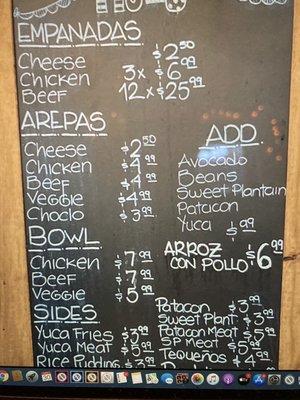 EMPANADAS
Cheese $2.50
Chicken 3x $6.99
Beef 12x $25.99
AREPAS
Cheese $2.50
Chicken $4.99
Beef $4.99
Veggie $4.99
Choclo $3.99
ADD
Avocado
Beans
Sweet Plantain
Patacon
Yuca $.99
BOWL
Chicken $7.99
Beef $7.99
Veggie $5.99
ARROZ
CON POLLO $6.99
SIDES
Yuca Fries $3.99
Yuca Meat $5.99
Rice Pudding $3.99
Patacon $3.99
Sweet Plant $3.99
Patacon Meat $5.99
SP Meat $5.99
Tequeños $4.99